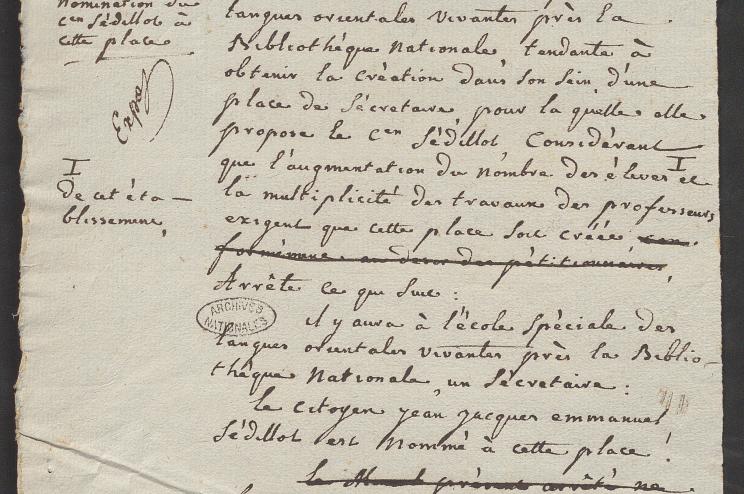 nomination du
cen Sédillot à
cette place
Expéd
I
De cet éta-
blissement,
langues orientales vivantes près la
Bibliothèque Nationale tendante à
obtenir la création dans son sein d'une
place de Sécretaire pour la quelle elle
propose le cen Sédillot, Considérant
que l'augmentation du nombre des éleves I et
la multiplicité des travaux des professeurs
exigent que cette place soit créée
formément au desir des pétitionnaires,
Arrête ce que suit :
ARCHIVES
NATIONALES
il y aura à l'école spéciale des
langues orientales vivantes près la Biblio-
thèque Nationale, un Sécretaire :
le Citoyen jean jacques emmanuel
Sédillot est nommé à cette place !
le présent arrêté ne